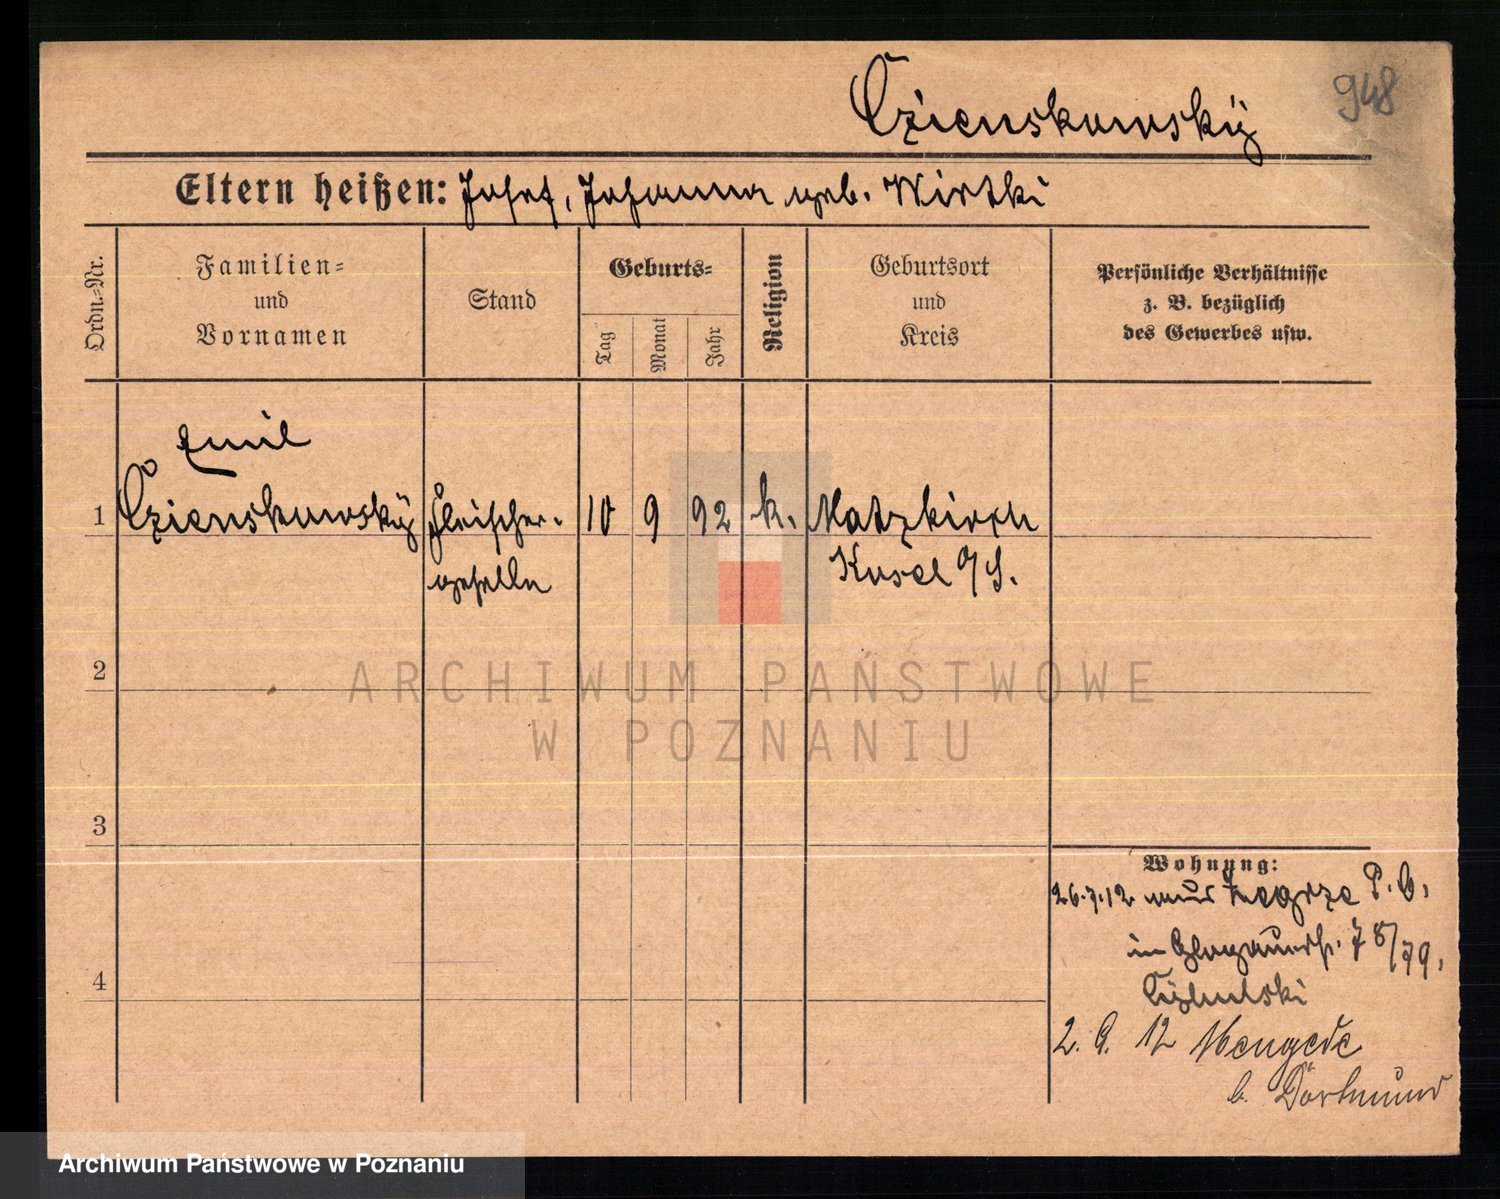 948
Czienskowsky
Eltern heißen: Josef, Johanna geb. Wirtki
Ordn.-Nr.
Familien-
und
Vornamen
Stand
Geburts-
Tag
Monat
Jahr
Religion
Geburtsort
und
Kreis
Persönliche Verhältnisse
z. B. bezüglich
des Gewerbes usw.
Emil
1 Czienskowsky Fleischer- 10 9 92 k. Matzkirch
geselle Kosel O/S.
2
3
4
Wohnung:
26.7.12 aus Zegrze P. O.
in Glogauerstr. 78/79.
Cybulski
2. 9. 12 Mengede
b. Dortmund
ARCHIWUM PAŃSTWOWE
W POZNANIU
Archiwum Państwowe w Poznaniu